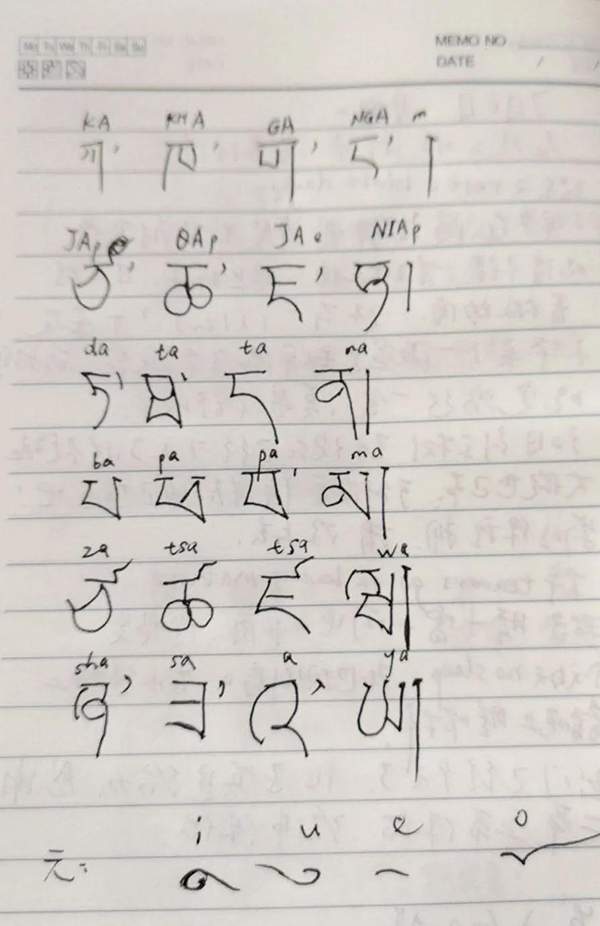 Mo Tu We Th Fr Sa Su MEMO NO.
DATE / /
KA KHA GA NGA m
ཀ་ ཁ་ ག་ ང་།
JAp ΘAp JAo NIAp
ཅ་ ཆ་ ཇ་ ཉ།
da ta ta na
ཏ་ ཐ་ ད ན།
ba pa pa ma
པ ཕ བ་ མ།
za tsa tsa wa
ཙ ཚ ཛ ཝ།
sha sa a ya
ཞ་ ཟ་ འ་ ཡ།
i u e o
元: ི ུ ེ ོ